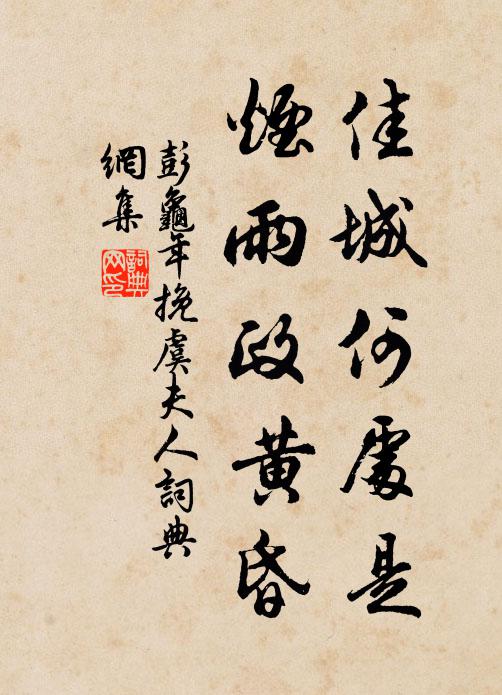 佳城何處是
煙雨政黃昏
彭龜年挽虞夫人詞典
網集
詞典
网印